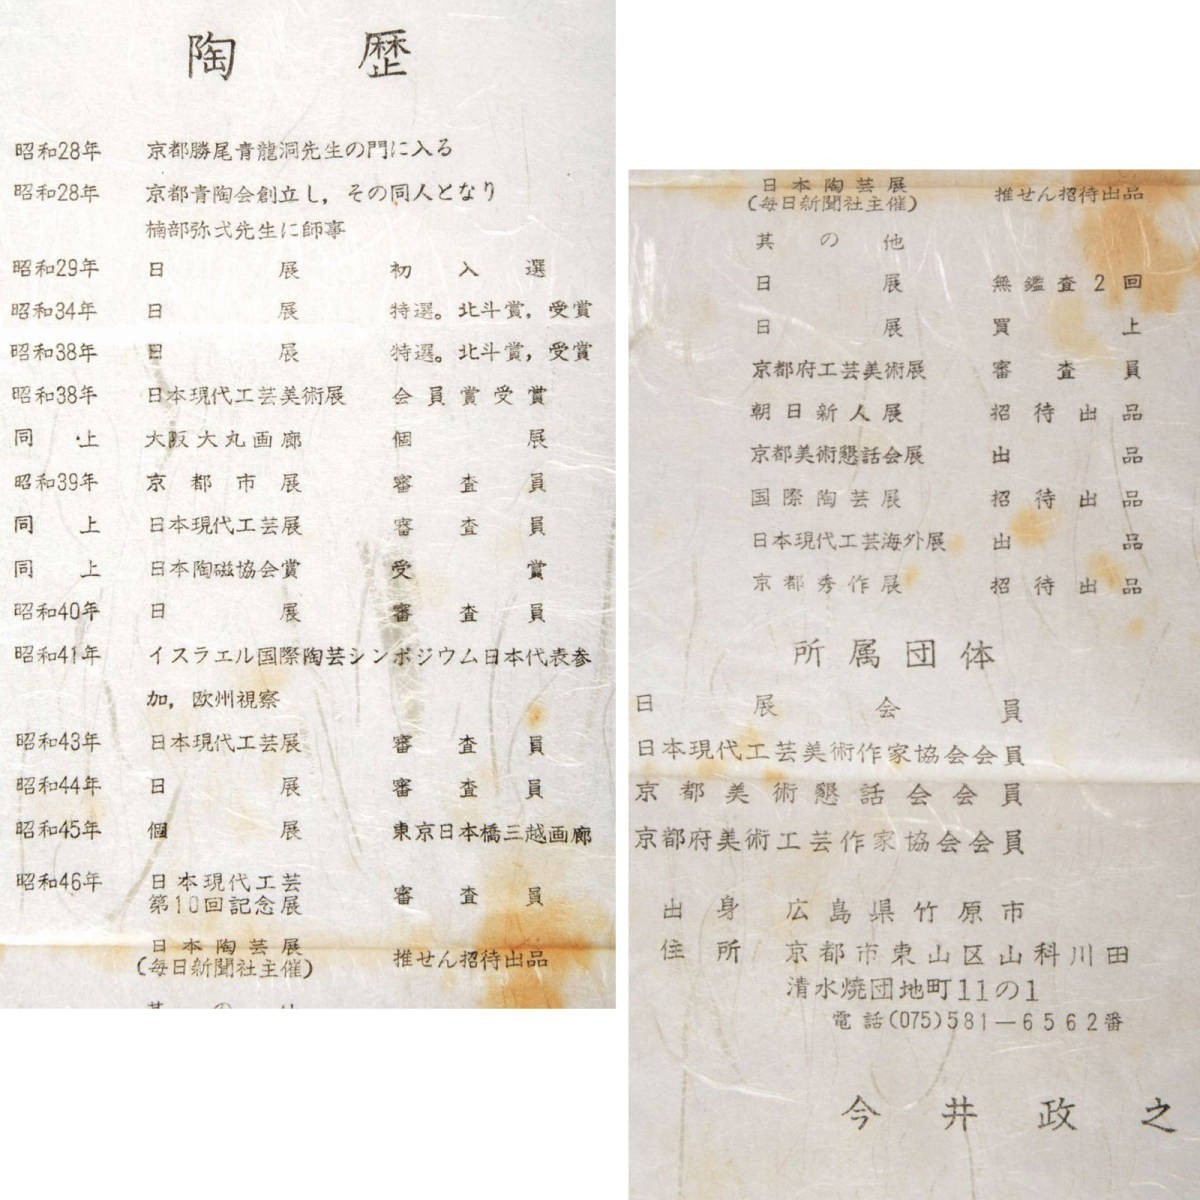 陶歴
昭和28年 京都勝尾青龍洞先生の門に入る
昭和28年 京都青陶会創立し，その同人となり
楠部弥弌先生に師事
昭和29年 日展 初入選
昭和34年 日展 特選。北斗賞，受賞
昭和38年 日展 特選。北斗賞，受賞
昭和38年 日本現代工芸美術展 会員賞受賞
同上 大阪大丸画廊 個展
昭和39年 京都市展 審査員
同上 日本現代工芸展 審査員
同上 日本陶磁協会賞 受賞
昭和40年 日展 審査員
昭和41年 イスラエル国際陶芸シンポジウム日本代表参
加，欧州視察
昭和43年 日本現代工芸展 審査員
昭和44年 日展 審査員
昭和45年 個展 東京日本橋三越画廊
昭和46年 日本現代工芸
第10回記念展 審査員
日本陶芸展
(毎日新聞社主催) 推せん招待出品
其の他
日本陶芸展
(毎日新聞社主催) 推せん招待出品
其の他
日展 無鑑査2回
日展 買上
京都府工芸美術展 審査員
朝日新人展 招待出品
京都美術懇話会展 出品
国際陶芸展 招待出品
日本現代工芸海外展 出品
京都秀作展 招待出品
所属団体
日展会員
日本現代工芸美術作家協会会員
京都美術懇話会会員
京都府美術工芸作家協会会員
出身 広島県竹原市
住所 京都市東山区山科川田
清水焼団地町11の1
電話(075)581－6562番
今井政之